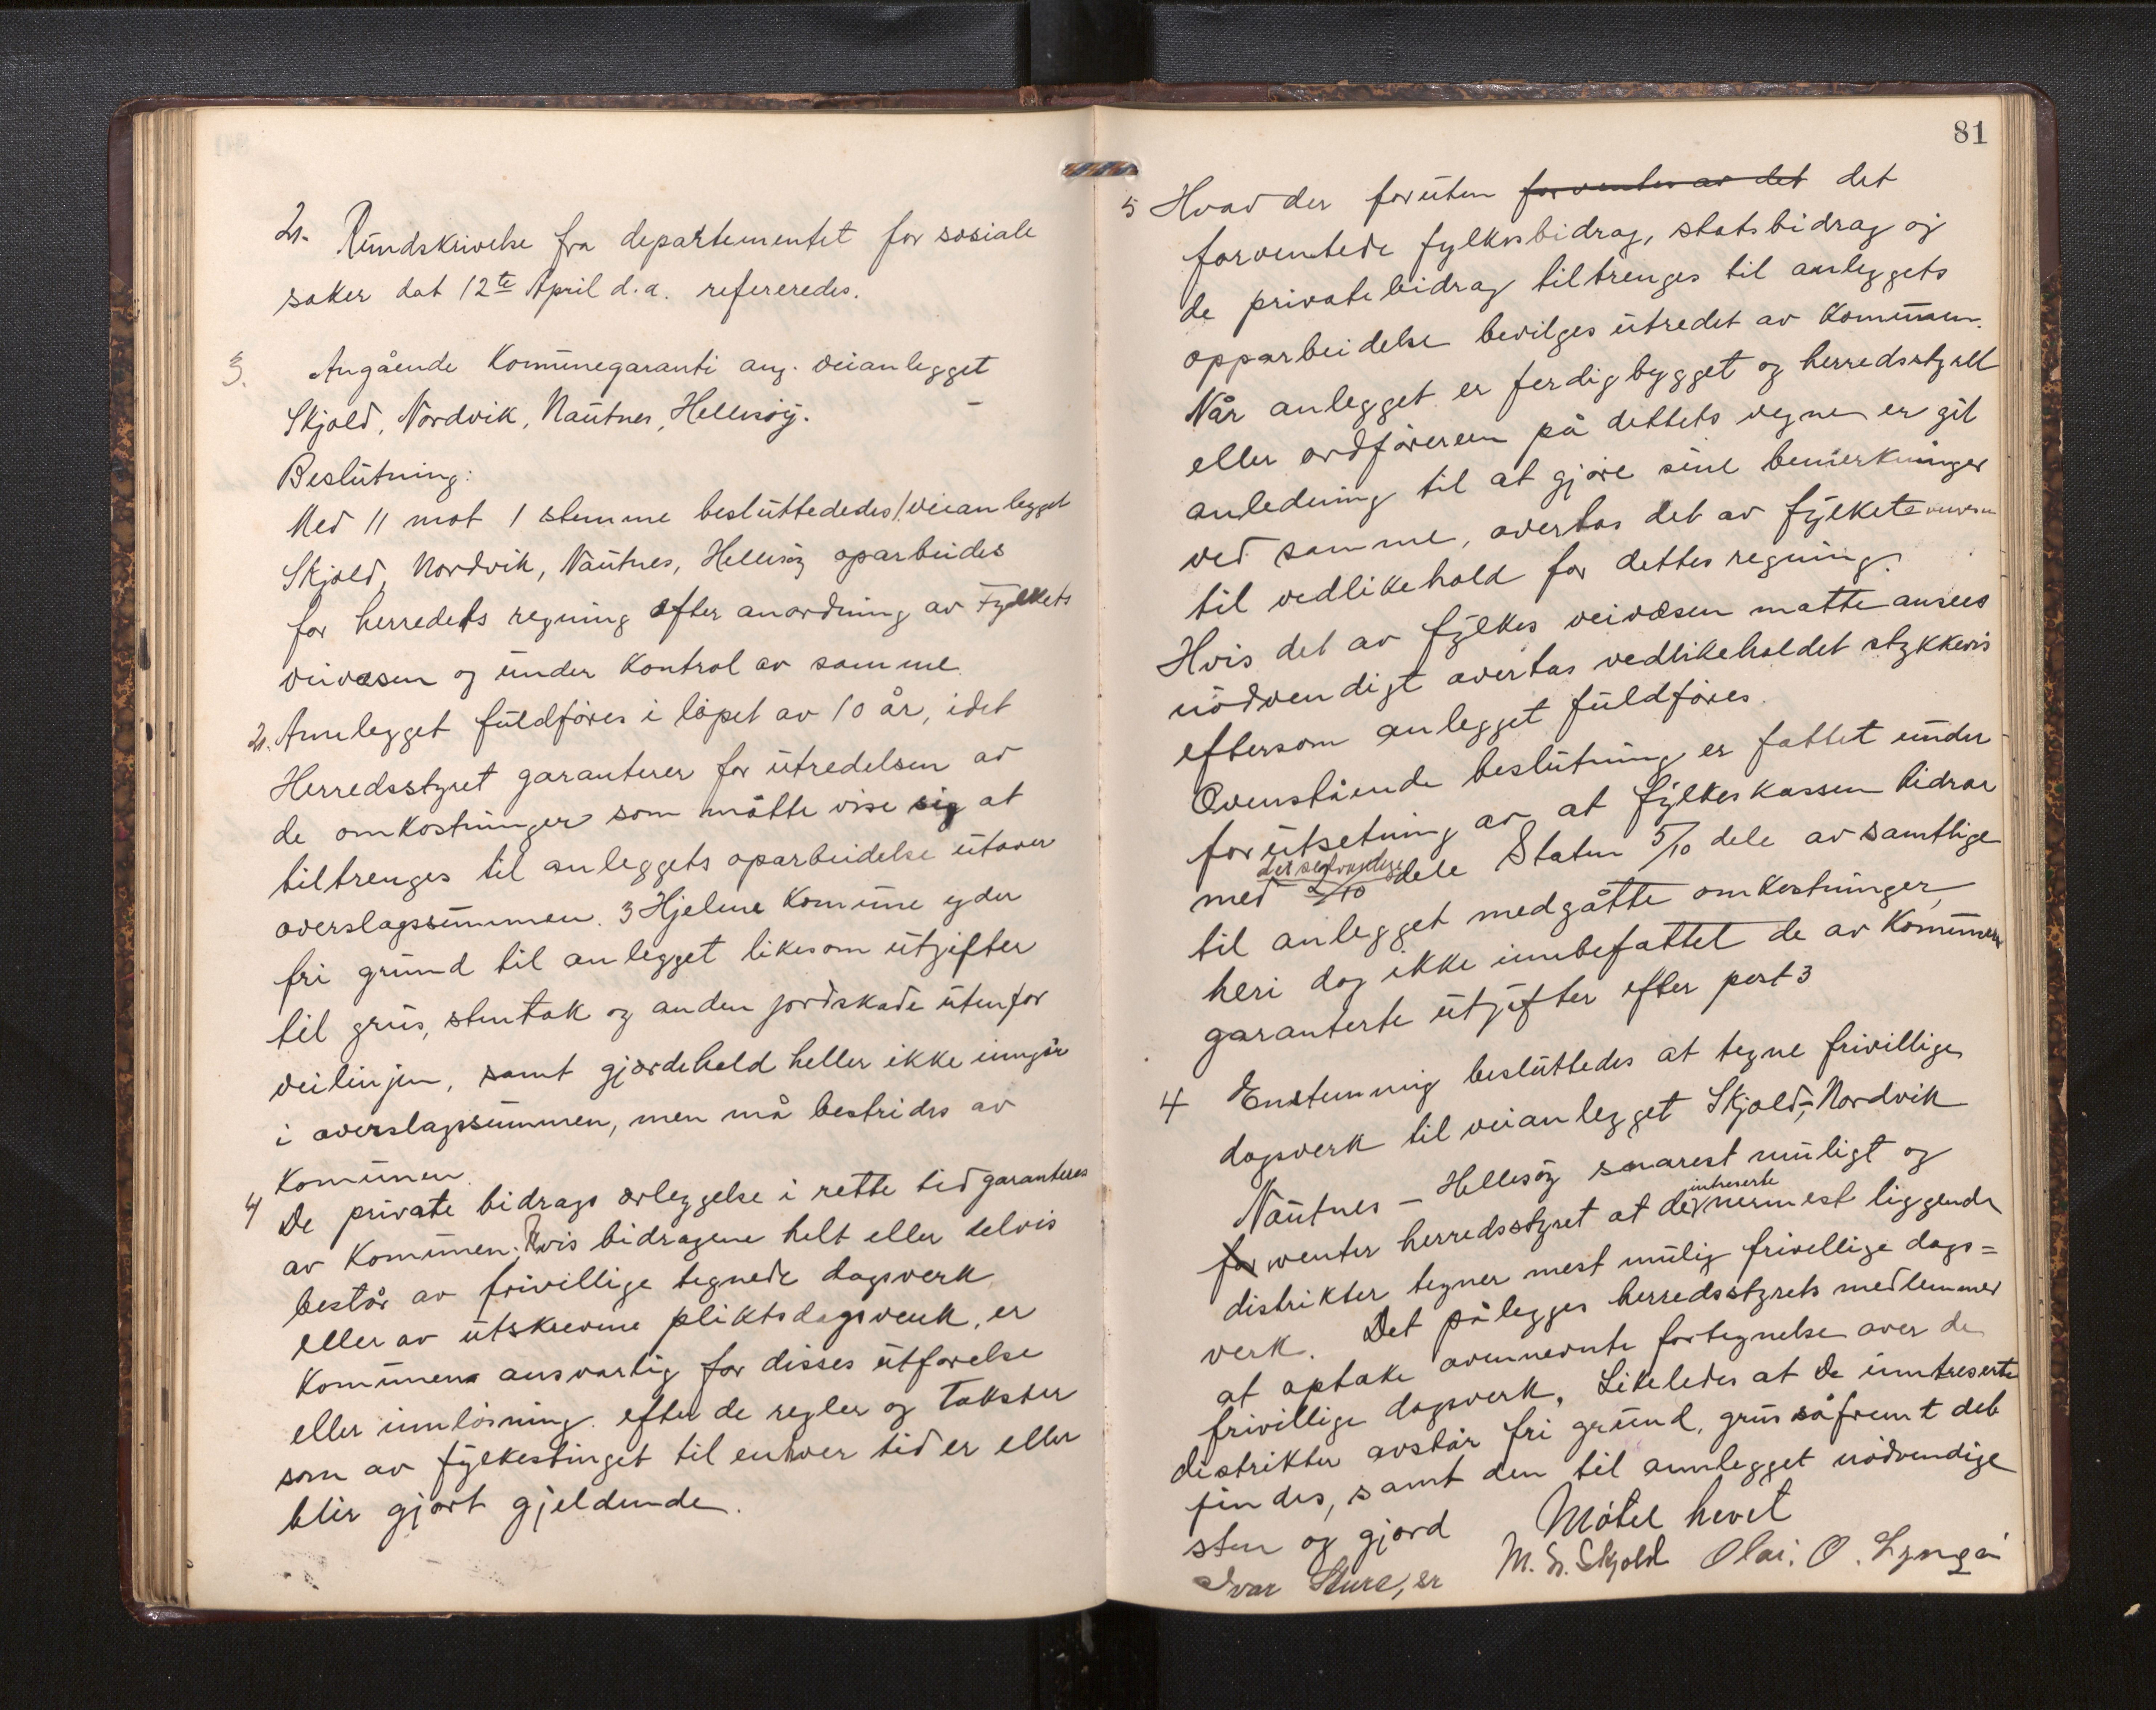 2. Rundskrivelse fra departementet for sosiale
saker dat 12te April d.a. refereredes.
3. Angående Komunegaranti ang. veianlegget
Skjold, Nordvik, Nautnes, Hellesøy.
Beslutning:
Med 11 mot 1 stemme besluttededes 1. veianlegget
Skjold, Nordvik, Nautnes, Hellesøy oparbeides
for herredets regning efter anordning av Fylkets
veivæsen og under Kontrol av samme.
2. Annlegget fuldföres i löpet av 10 år, idet
Herredsstyret garanterer for utredelsen av
de omkostninger som måtte vise sig at
tiltrenges til anleggets oparbeidelse utover
overslagssummen. 3 Hjelme Komune yder
fri grund til anlegget likesom utgifter
til grus, stentak og anden jordskade utenfor
veilinjen, samt gjærdehold heller ikke inngår
i overslagssummen, men må bestrides av
Komunen.
4 De private bidrags ærleggelse i rette tid garanteres
av Komunen. Hvis bidragene helt eller delvis
består av frivillige tegnede dagsverk
eller av utskrevne pliktsdagsverk, er
Komunen ansvarlig for disses utførelse
eller innlösning. efter de regler og Takster
som av fylkestinget til enhver tid er eller
blir gjort gjeldende.
81
5 Hvad der foruten forventes av det det
forventede fylkesbidrag, statsbidrag og
de private bidrag tiltrenges til anleggets
opparbeidelse bevilges utredet av Komunen.
Når anlegget er ferdigbygget og herredsstyret
eller ordföreren på dettets vegne er git
anledning til at gjöre sine bemerkninger
ved samme, overtas det av fylkets
til vedlikehold for dettes regning.
Hvis det av fylkes veivæsen matte ansees
nödvendigt overtas vedlikeholdet stykkevis
eftersom anlegget fuldföres.
Ovenstående beslutning er fattet under
forutsetning av at fylkeskassen bidrar
med 2/10 dele Staten 5/10 dele av samtlige
til anlegget medgåtte omkostninger,
heri dog ikke innbefattet de av Komunen
garanterte utgifter efter post 3
4 Enstemmig besluttedes at tegne frivillige
dagsverk til veianlegget Skjold, Nordvik
Nautnes – Hellesøy snarest muligt og
forventer herredsstyret at de intreserte nermest liggende
distrikter tegner mest mulig frivellige dags=
verk. Det pålegges herredsstyrets medlemmer
at optake ovennevnte fortegnelse over de
frivillige dagsverk. Likeledes at de inntreserte
distrikter avstår fri grund, grus såfremt det
findes, samt den til annlegget nödvendige
sten og gjord Mötet hevet
Ivar Sture, er M. N. Skjold Olai. O. Lyngö